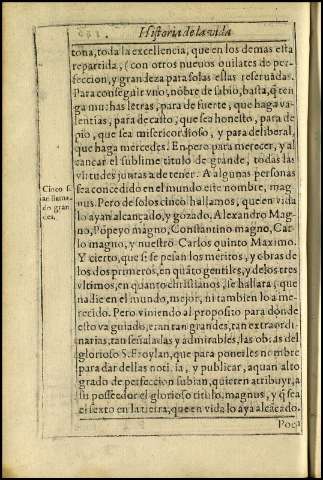 Historia de la vida
tona, toda la excellencia, que en los demas esta
repartida, (con otros nueuos quilates de per-
feccion, y grandeza para solas ellas reseruadas.
Para conseguir vno, nõbre de sabio, basta, q̃ ten
ga muchas letras, para de fuerte, que haga va-
lentias, para de casto, que sea honesto, para de
pio, que sea misericordioso, y para deliberal,
que haga mercedes. Empero para merecer, y al
cançar el sublime titulo de grande, todas las
virtudes juntas a de tener. A algunas personas
sea concedido en el mundo este nombre, mag
nus. Pero de solos cinco hallamos, que en vida
lo ayan alcançado, y gozado, Alexandro Mag-
no, Põpeyo magno, Constantino magno, Car-
lo magno, y nuestro Carlos quinto Maximo.
Y cierto, que si se pesan los meritos, y obras de
los dos primeros, en quãto gentiles, y de los tres
vltimos, en quanto christianos, se hallara, que
nadie en el mundo, mejor, ni tambien lo a me-
recido. Pero viniendo al proposito para donde
esto va guiado, eran tan grandes, tan extraordi-
narias, tan señaladas y admirables, las obras del
glorioso S. Froylan, que para ponerles nombre
para dar dellas noticia, y publicar, a quan alto
grado de perfeccion subian, quieren atribuyr, a
su posseedor el glorioso titulo, magnus, y q̃ sea
el sexto en la tierra, que en vida lo aya alcãçado.
Poca
Cinco s
an llama-
do gran
des,